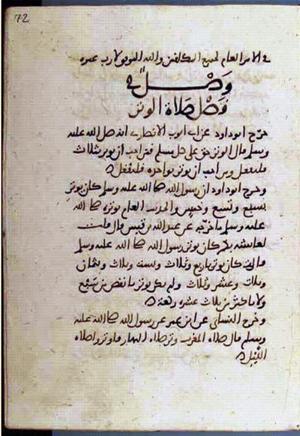 72
في الامر العام لجميع المكلفين والله الموفق لا رب غيره
وصل
فصل صلاة الوتر
خرج ابو داود عن ابي ايوب الانصاري انه صلى الله عليه
وسلم قال الوتر حق على كل مسلم فمن احب ان يوتر بثلاث
فليفعل ومن احب ان يوتر بواحدة فليفعل
وخرج ابو داود ان رسول الله صلى الله عليه وسلم كان يوتر
بسبع وتسع وخمس والحديث العام بوتره صلى الله
عليه وسلم ما خرجه عن عبد الله بن قيس قال قلت
لعائشة بكم كان يوتر رسول الله صلى الله عليه وسلم
قالت كان يوتر باربع وثلاث وست وثلاث وثمان
وثلاث وعشر وثلاث ولم يكن يوتر بانقص من سبع
ولا باكثر من ثلاث عشرة ركعة
وخرج النسائي عن ابن عمر عن رسول الله صلى الله عليه
وسلم قال صلاة المغرب وتر صلاة النهار فاوتروا صلاة
الليل